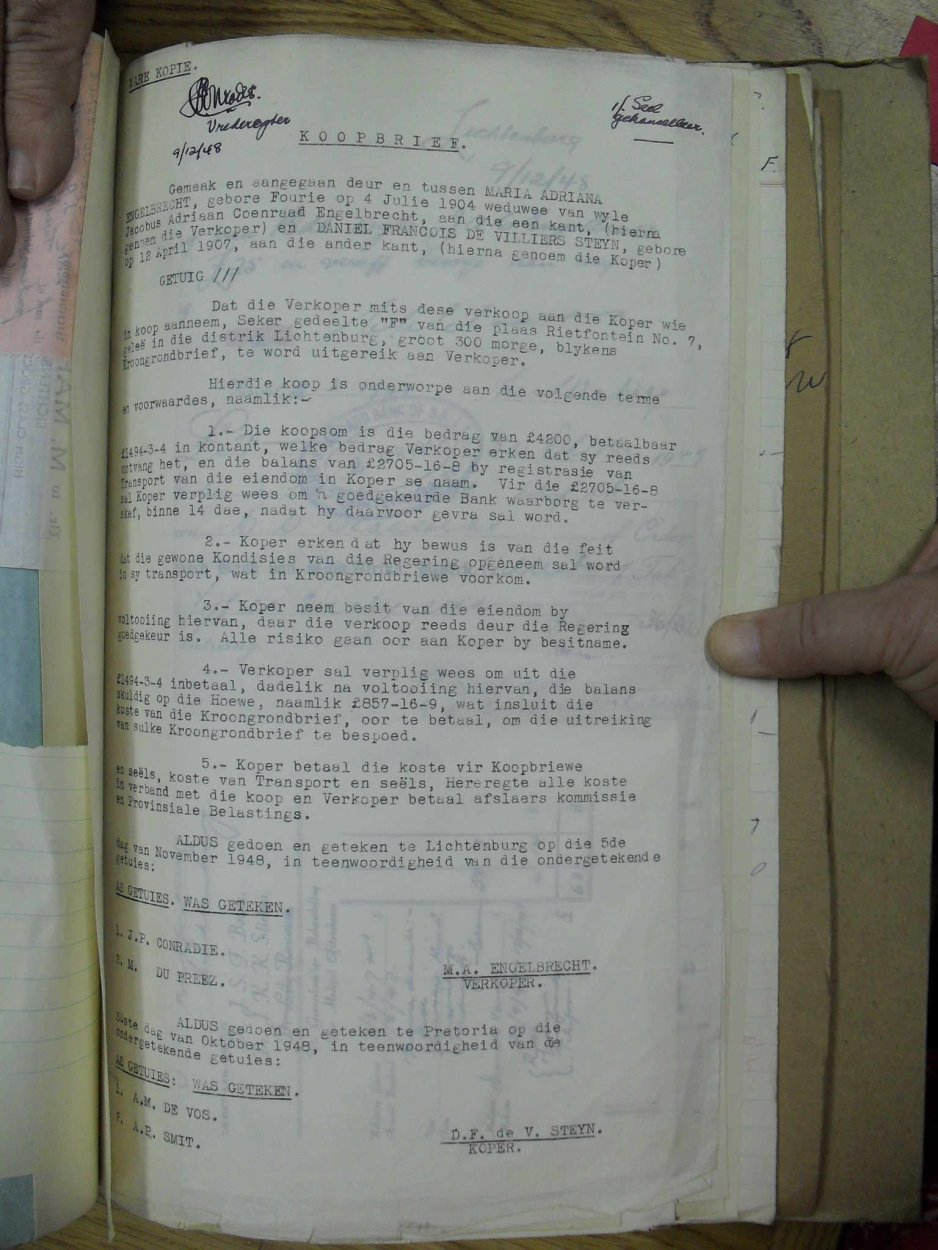 WARE KOPIE.
Vrederegter
9/12/48
1/- Seël
gekanselleer.
KOOPBRIEF.
Lichtenburg
9/12/48
Gemaak en aangegaan deur en tussen MARIA ADRIANA
ENGELBRECHT, gebore Fourie op 4 Julie 1904 weduwee van wyle
Jacobus Adriaan Coenraad Engelbrecht, aan die een kant, (hierna
genoem die Verkoper) en DANIEL FRANCOIS DE VILLIERS STEYN, gebore
op 12 April 1907, aan die ander kant, (hierna genoem die Koper)
GETUIG ///
Dat die Verkoper mits dese verkoop aan die Koper wie
in koop aanneem, Seker gedeelte "F" van die plaas Rietfontein No. 7,
geleë in die distrik Lichtenburg, groot 300 morge, blykens
Kroongrondbrief, te word uitgereik aan Verkoper.
Hierdie koop is onderworpe aan die volgende terme
en voorwaardes, naamlik:-
1.- Die koopsom is die bedrag van £4200, betaalbaar
£1494-3-4 in kontant, welke bedrag Verkoper erken dat sy reeds
ontvang het, en die balans van £2705-16-8 by registrasie van
Transport van die eiendom in Koper se naam. Vir die £2705-16-8
sal Koper verplig wees om 'n goedgekeurde Bank waarborg te ver-
skaf, binne 14 dae, nadat hy daarvoor gevra sal word.
2.- Koper erken dat hy bewus is van die feit
dat die gewone Kondisies van die Regering opgeneem sal word
in sy transport, wat in Kroongrondbriewe voorkom.
3.- Koper neem besit van die eiendom by
voltooiing hiervan, daar die verkoop reeds deur die Regering
goedgekeur is. Alle risiko gaan oor aan Koper by besitname.
4.- Verkoper sal verplig wees om uit die
£1494-3-4 inbetaal, dadelik na voltooiing hiervan, die balans
skuldig op die Hoewe, naamlik £857-16-9, wat insluit die
koste van die Kroongrondbrief, oor te betaal, om die uitreiking
van sulke Kroongrondbrief te bespoed.
5.- Koper betaal die koste vir Koopbriewe
en seëls, koste van Transport en seëls, Hereregte alle koste
in verband met die koop en Verkoper betaal afslaers kommissie
en Provinsiale Belastings.
ALDUS gedoen en geteken te Lichtenburg op die 5de
dag van November 1948, in teenwoordigheid van die ondergetekende
getuies:
AS GETUIES. WAS GETEKEN.
1. J.P. CONRADIE.
2. M. DU PREEZ.
M.A. ENGELBRECHT.
VERKOPER.
ALDUS gedoen en geteken te Pretoria op die
30ste dag van Oktober 1948, in teenwoordigheid van de
ondergetekende getuies:
AS GETUIES: WAS GETEKEN.
1. A.M. DE VOS.
2. A.R. SMIT.
D.F. de V. STEYN.
KOPER.